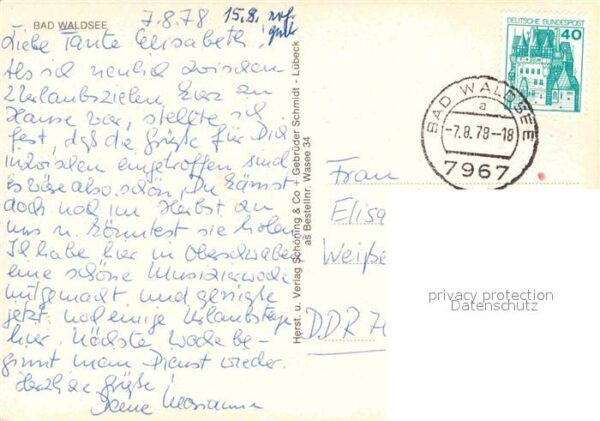 BAD WALDSEE
7.8.78
15.8.
Liebe Tante Elisabeth!
Als ich neulich zwischen
Urlaubszielen kurz zu
Hause war, stellte ich
fest, daß die Grüße für Dich
inzwischen eingetroffen sind
es wäre also schön, Du kämst
doch noch im Herbst zu
uns u. könntest sie holen.
Ich habe hier in Oberschwaben
eine schöne Musizierwoche
mitgemacht und genieße
jetzt noch einige Urlaubstage
hier. Nächste Woche be-
ginnt mein Dienst wieder.
Herzliche Grüße!
Deine Marianne
Herst. u. Verlag Schöning & Co + Gebrüder Schmidt - Lübeck
as Bestellnr. Wasee 34
DEUTSCHE BUNDESPOST
40
BAD WALDSEE
a
-7.8.78-18
7967
Frau
Elisa
Weiße
DDR 70
privacy protection
Datenschutz